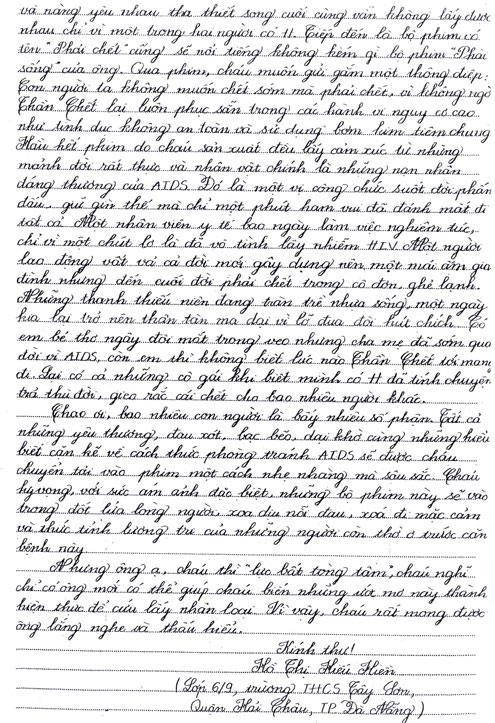 và nàng yêu nhau tha thiết song cuối cùng vẫn không lấy được
nhau chỉ vì một trong hai người có H. Tiếp đến là bộ phim có
tên "Phải chết" cũng sẽ nổi tiếng không kém gì bộ phim "Phải
sống" của ông. Qua phim, cháu muốn gửi gắm một thông điệp:
Con người ta không muốn chết sớm mà phải chết, vì không ngờ
Thần Chết lại luôn phục sẵn trong các hành vi nguy cơ cao
như tình dục không an toàn và sử dụng bơm kim tiêm chung
Hầu hết phim do cháu sản xuất đều lấy cảm xúc từ những
mảnh đời rất thực và nhân vật chính là những nạn nhân
đáng thương của AIDS. Đó là một vị công chức suốt đời phấn
đấu, giữ gìn thế mà chỉ một phút ham vui đã đánh mất đi
tất cả. Một nhân viên y tế bao ngày làm việc nghiêm túc,
chỉ vì một chút lơ là đã vô tình lây nhiễm HIV. Một người
lao động vất vả cả đời mới gây dựng nên một mái ấm gia
đình nhưng đến cuối đời phải chết trong cô đơn, ghẻ lạnh.
Những thanh thiếu niên đang tràn trề nhựa sống, một ngày
kia lại trở nên thân tàn ma dại vì lỡ đua đòi hút chích. Có
em bé thơ ngây đôi mắt trong veo nhưng cha mẹ đã sớm qua
đời vì AIDS, còn em thì không biết lúc nào Thần Chết tới mang
đi. Lại có cả những cô gái khi biết mình có H đã tính chuyện
trả thù đời, gieo rắc cái chết cho bao nhiêu người khác.
Chao ôi, bao nhiêu con người là bấy nhiêu số phận. Tất cả
những yêu thương, đau xót, bạc bẽo, dại khờ cùng những hiểu
biết cặn kẽ về cách thức phòng tránh AIDS sẽ được cháu
chuyển tải vào phim một cách nhẹ nhàng mà sâu sắc. Cháu
hy vọng, với sức ám ảnh đặc biệt, những bộ phim này sẽ vào
trong đốt lửa lòng người, xoa dịu nỗi đau, xoá đi mặc cảm
và thức tỉnh lương tri của những người còn thờ ơ trước căn
bệnh này.
Nhưng ông ạ, cháu thì "lực bất tòng tâm", cháu nghĩ
chỉ có ông mới có thể giúp cháu biến những ước mơ này thành
hiện thực để cứu lấy nhân loại. Vì vậy, cháu rất mong được
ông lắng nghe và thấu hiểu.
Kính thư!
Hồ Thị Hiếu Hiền
(Lớp 6/9, trường THCS Tây Sơn,
Quận Hải Châu, TP Đà Nẵng)